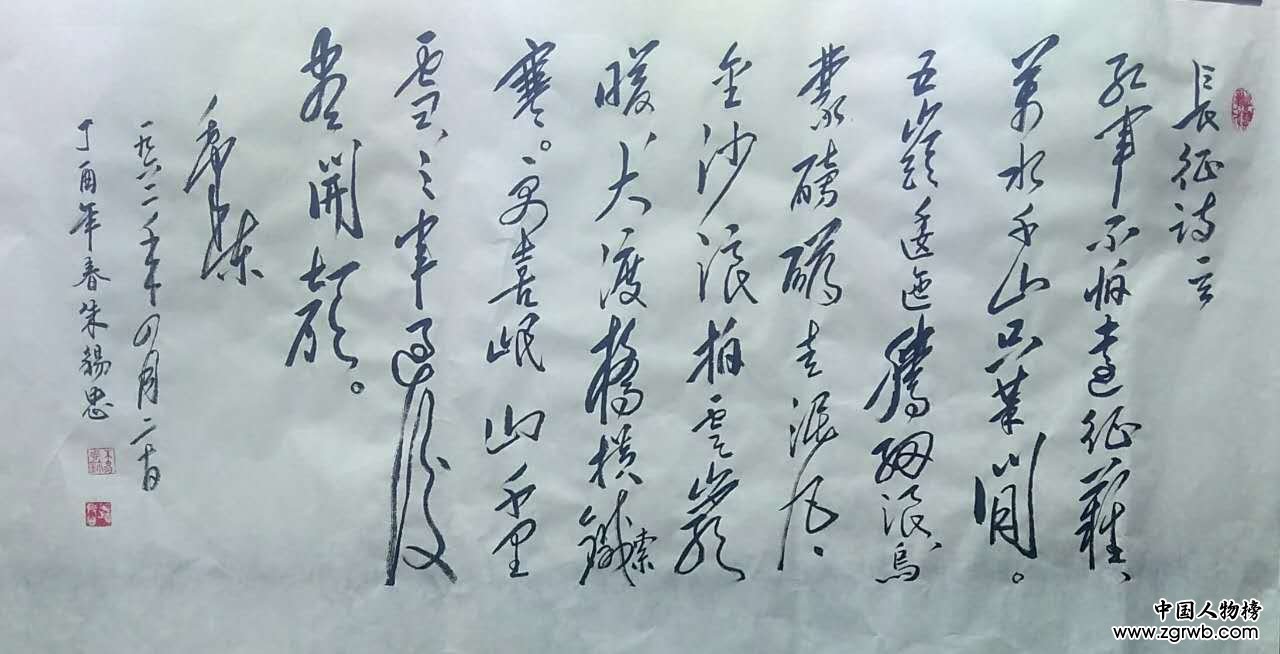 長征詩一首
紅軍不怕遠征難、
萬水千山只等閒。
五嶺逶迤騰細浪烏
蒙磅礴走泥丸、
金沙浪拍雲崖
暖、大渡橋橫鐵索
寒。更喜岷山千里
雪、三軍過後
盡開顏。
毛澤東
一九六二年四月二十日
丁酉年春朱錫忠
中国人物榜
www.zgrwb.com